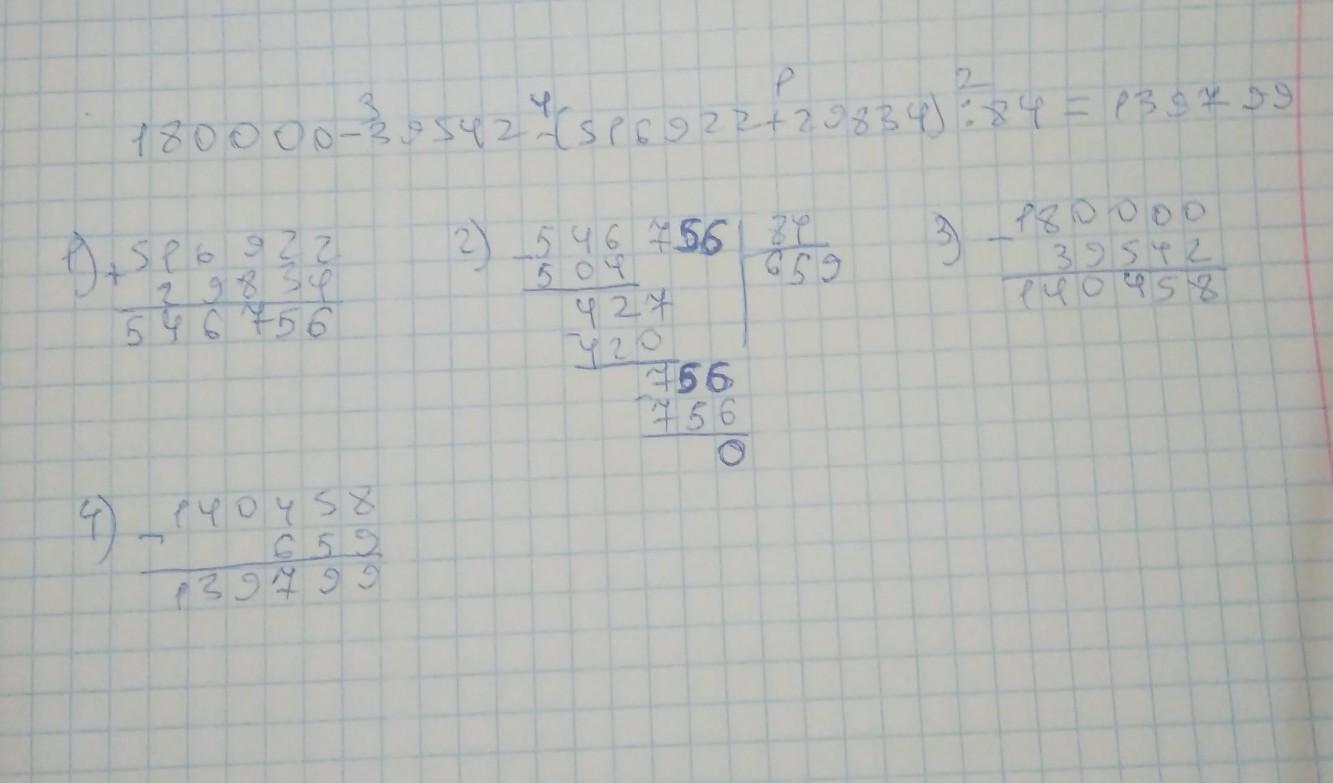 3 4 1 2
180000-39542-(516922+29834):84=139799
1) + 516 922
29834
546 756
2) - 546 756 | 84
504 659
427
- 420
756
- 756
0
3) - 180000
39542
140458
4) - 140458
659
139799